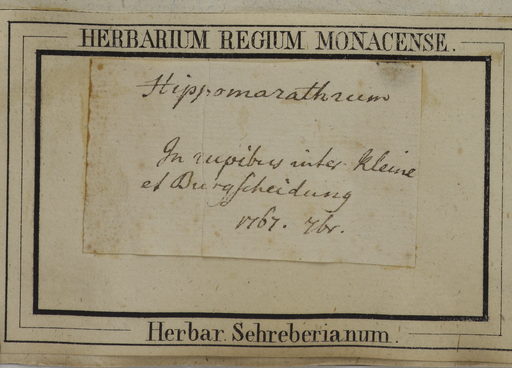 HERBARIUM REGIUM MONACENSE.
Hippomarathrum
In rupibus inter Kleine
et Burgscheidung
1767. 7br.
Herbar. Schreberianum.